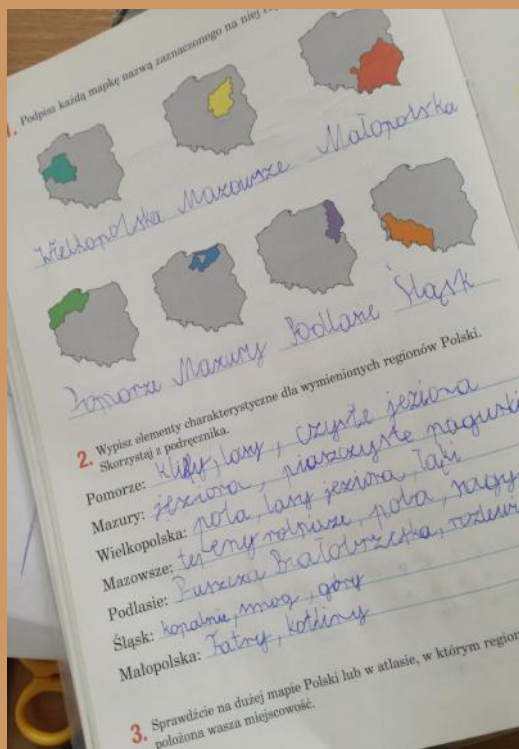 1. Podpisz każdą mapkę nazwą zaznaczonego na niej
Wielkopolska Mazowsze Małopolska
Pomorze Mazury Podlasie Śląsk
2. Wypisz elementy charakterystyczne dla wymienionych regionów Polski.
Skorzystaj z podręcznika.
Pomorze: klify, lasy, czyste jeziora
Mazury: jeziora, piaszczyste pagórki
Wielkopolska: pola, lasy jeziora, łąki
Mazowsze: tereny rolnicze, pola,
Podlasie: Puszcza
Śląsk: kopalnie, smog, góry
Małopolska: Tatry, kotliny
3. Sprawdźcie na dużej mapie Polski lub w atlasie, w którym
położona wasza miejscowość.